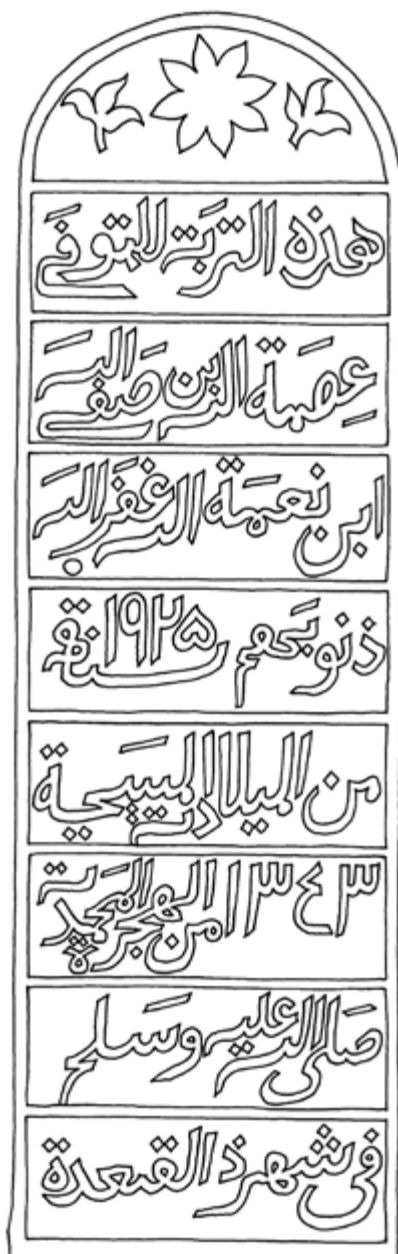 هذه التربة لالتوفى
عصمة الله بن صفى الله
ابن نعمة الله غفر الله
ذنوبهم سنة ١٩٢٥
من الميلادية المسيحية
١٣٤٣ من الهجرة المحمدية
صلى الله عليه وسلم
فى شهر ذ القعدة